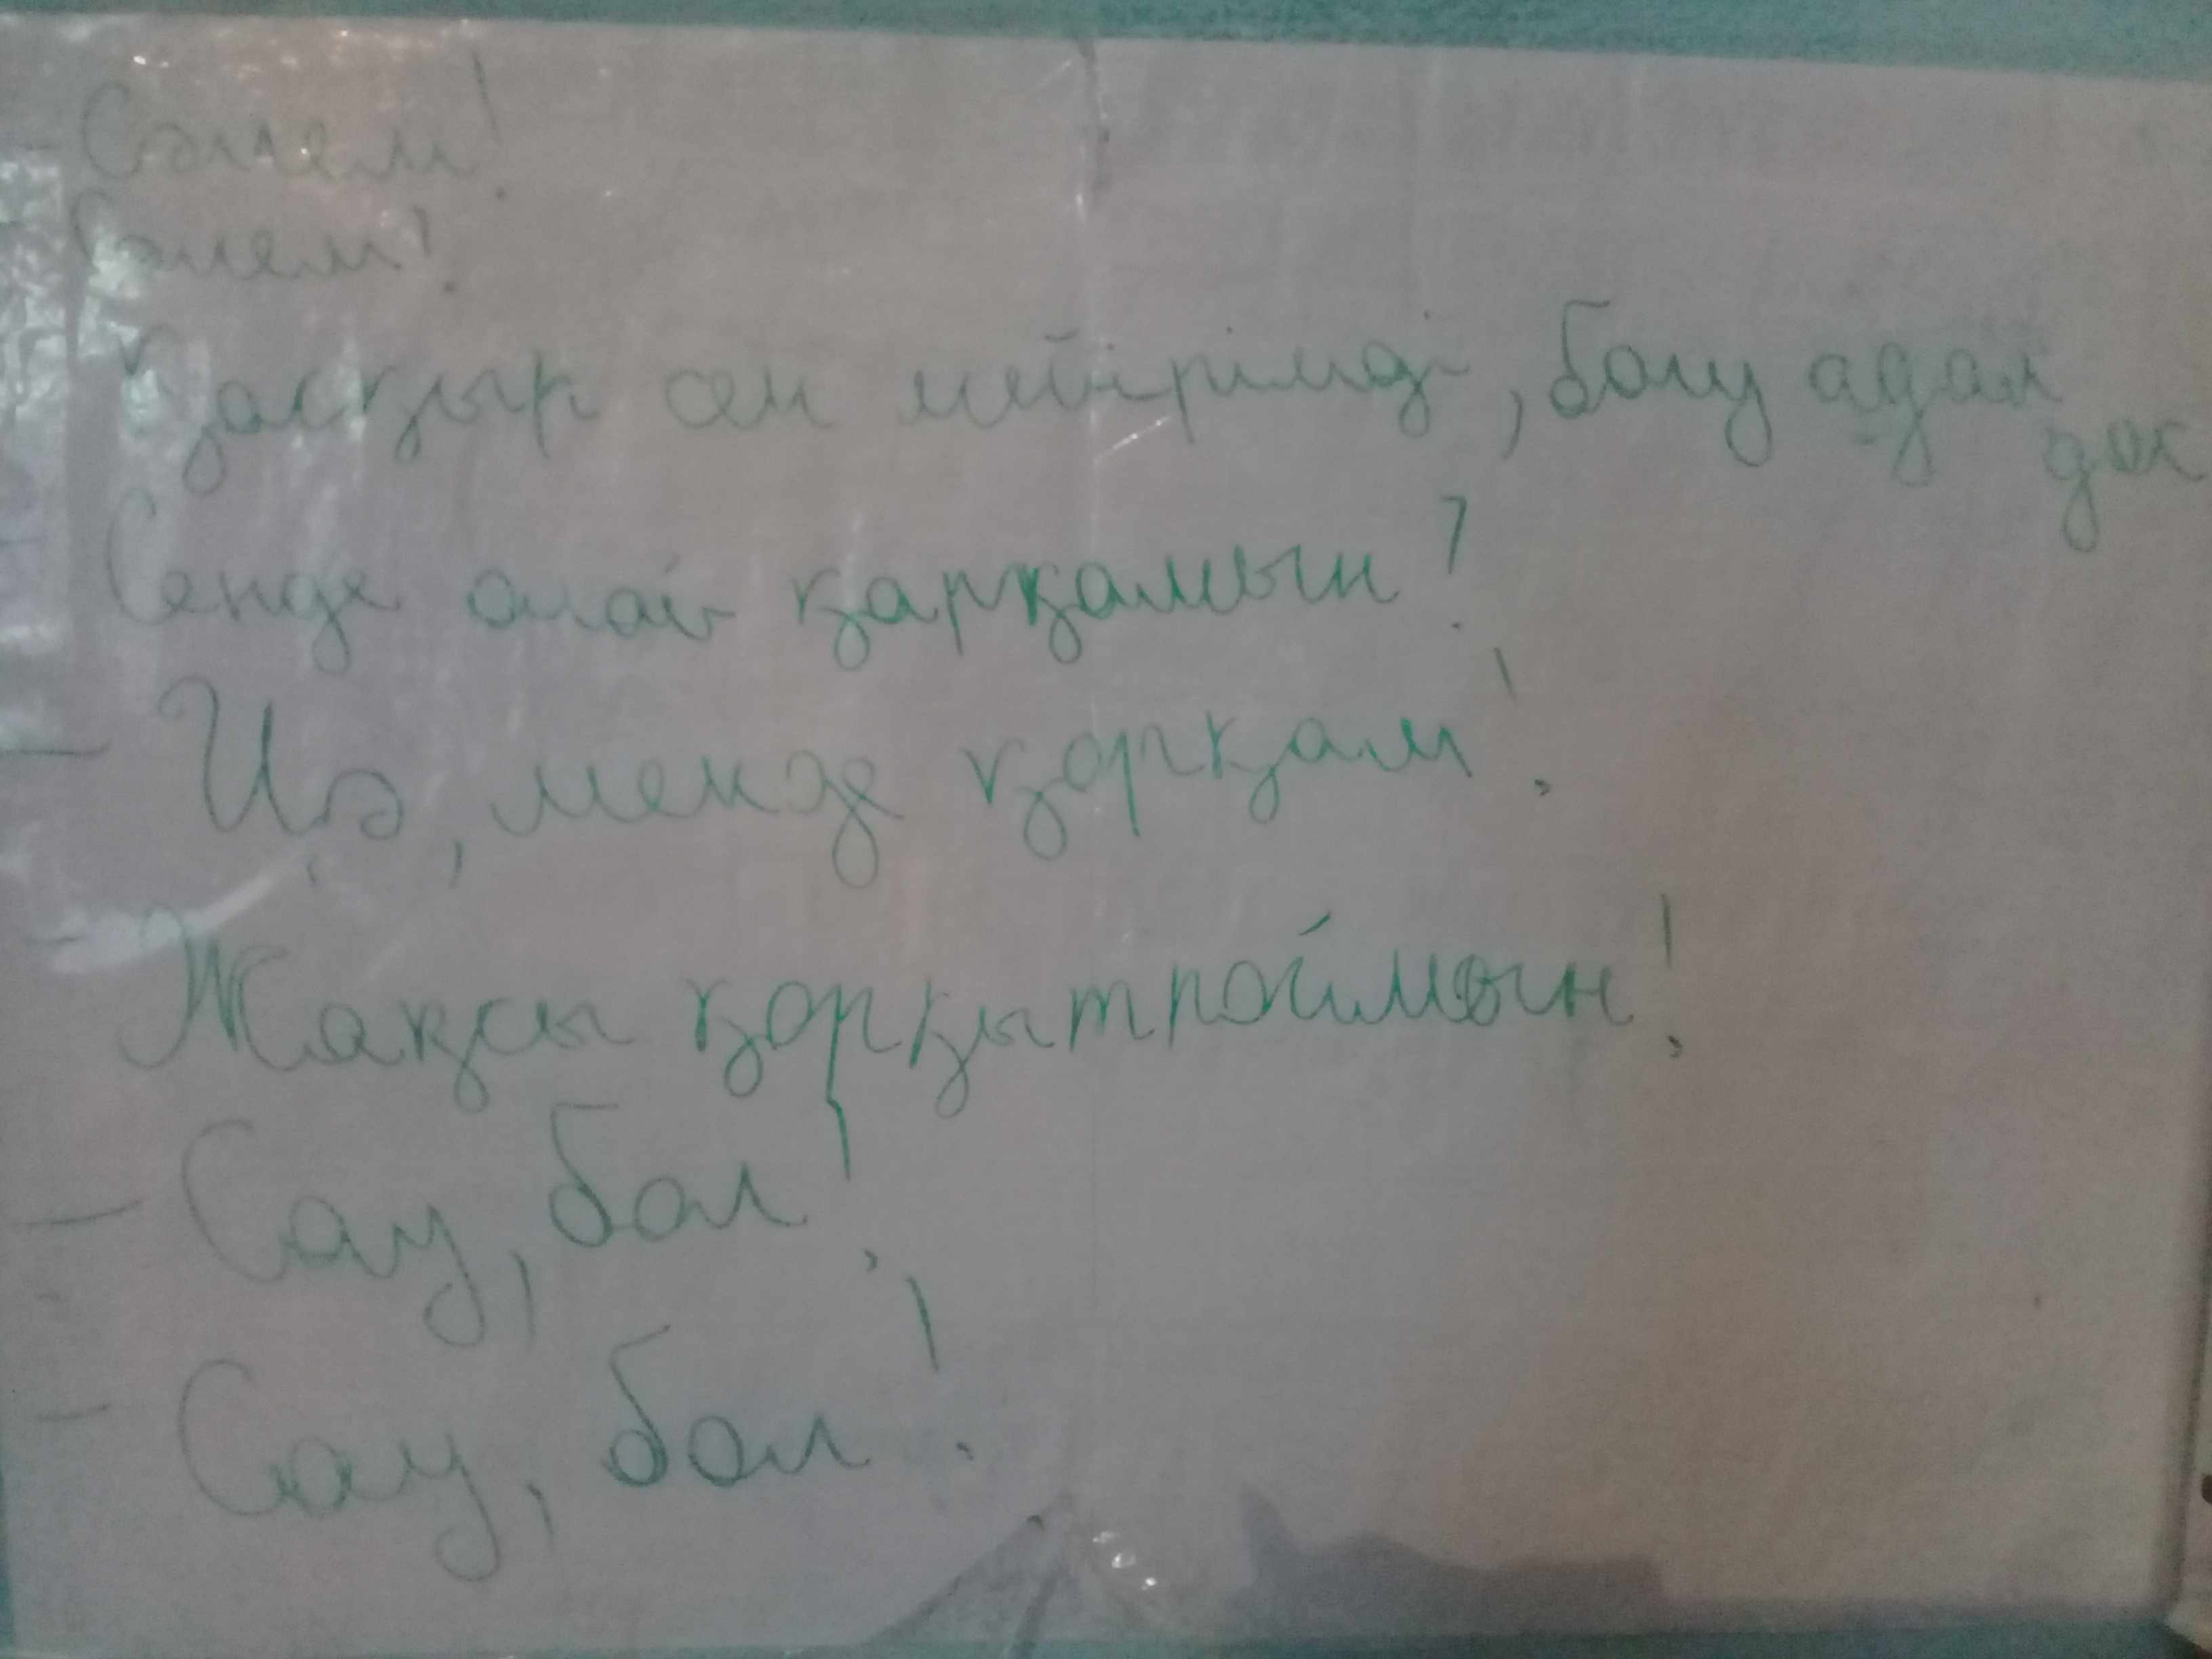 - Сәлем!
- Сәлем!
Қасқыр сен мейірімді, болу адал дос
Сенде алай қарқамын?
- Иә, менде қорқам!
- Жақсы қорқытпоймын!
- Сау, бол!
- Сау, бол!